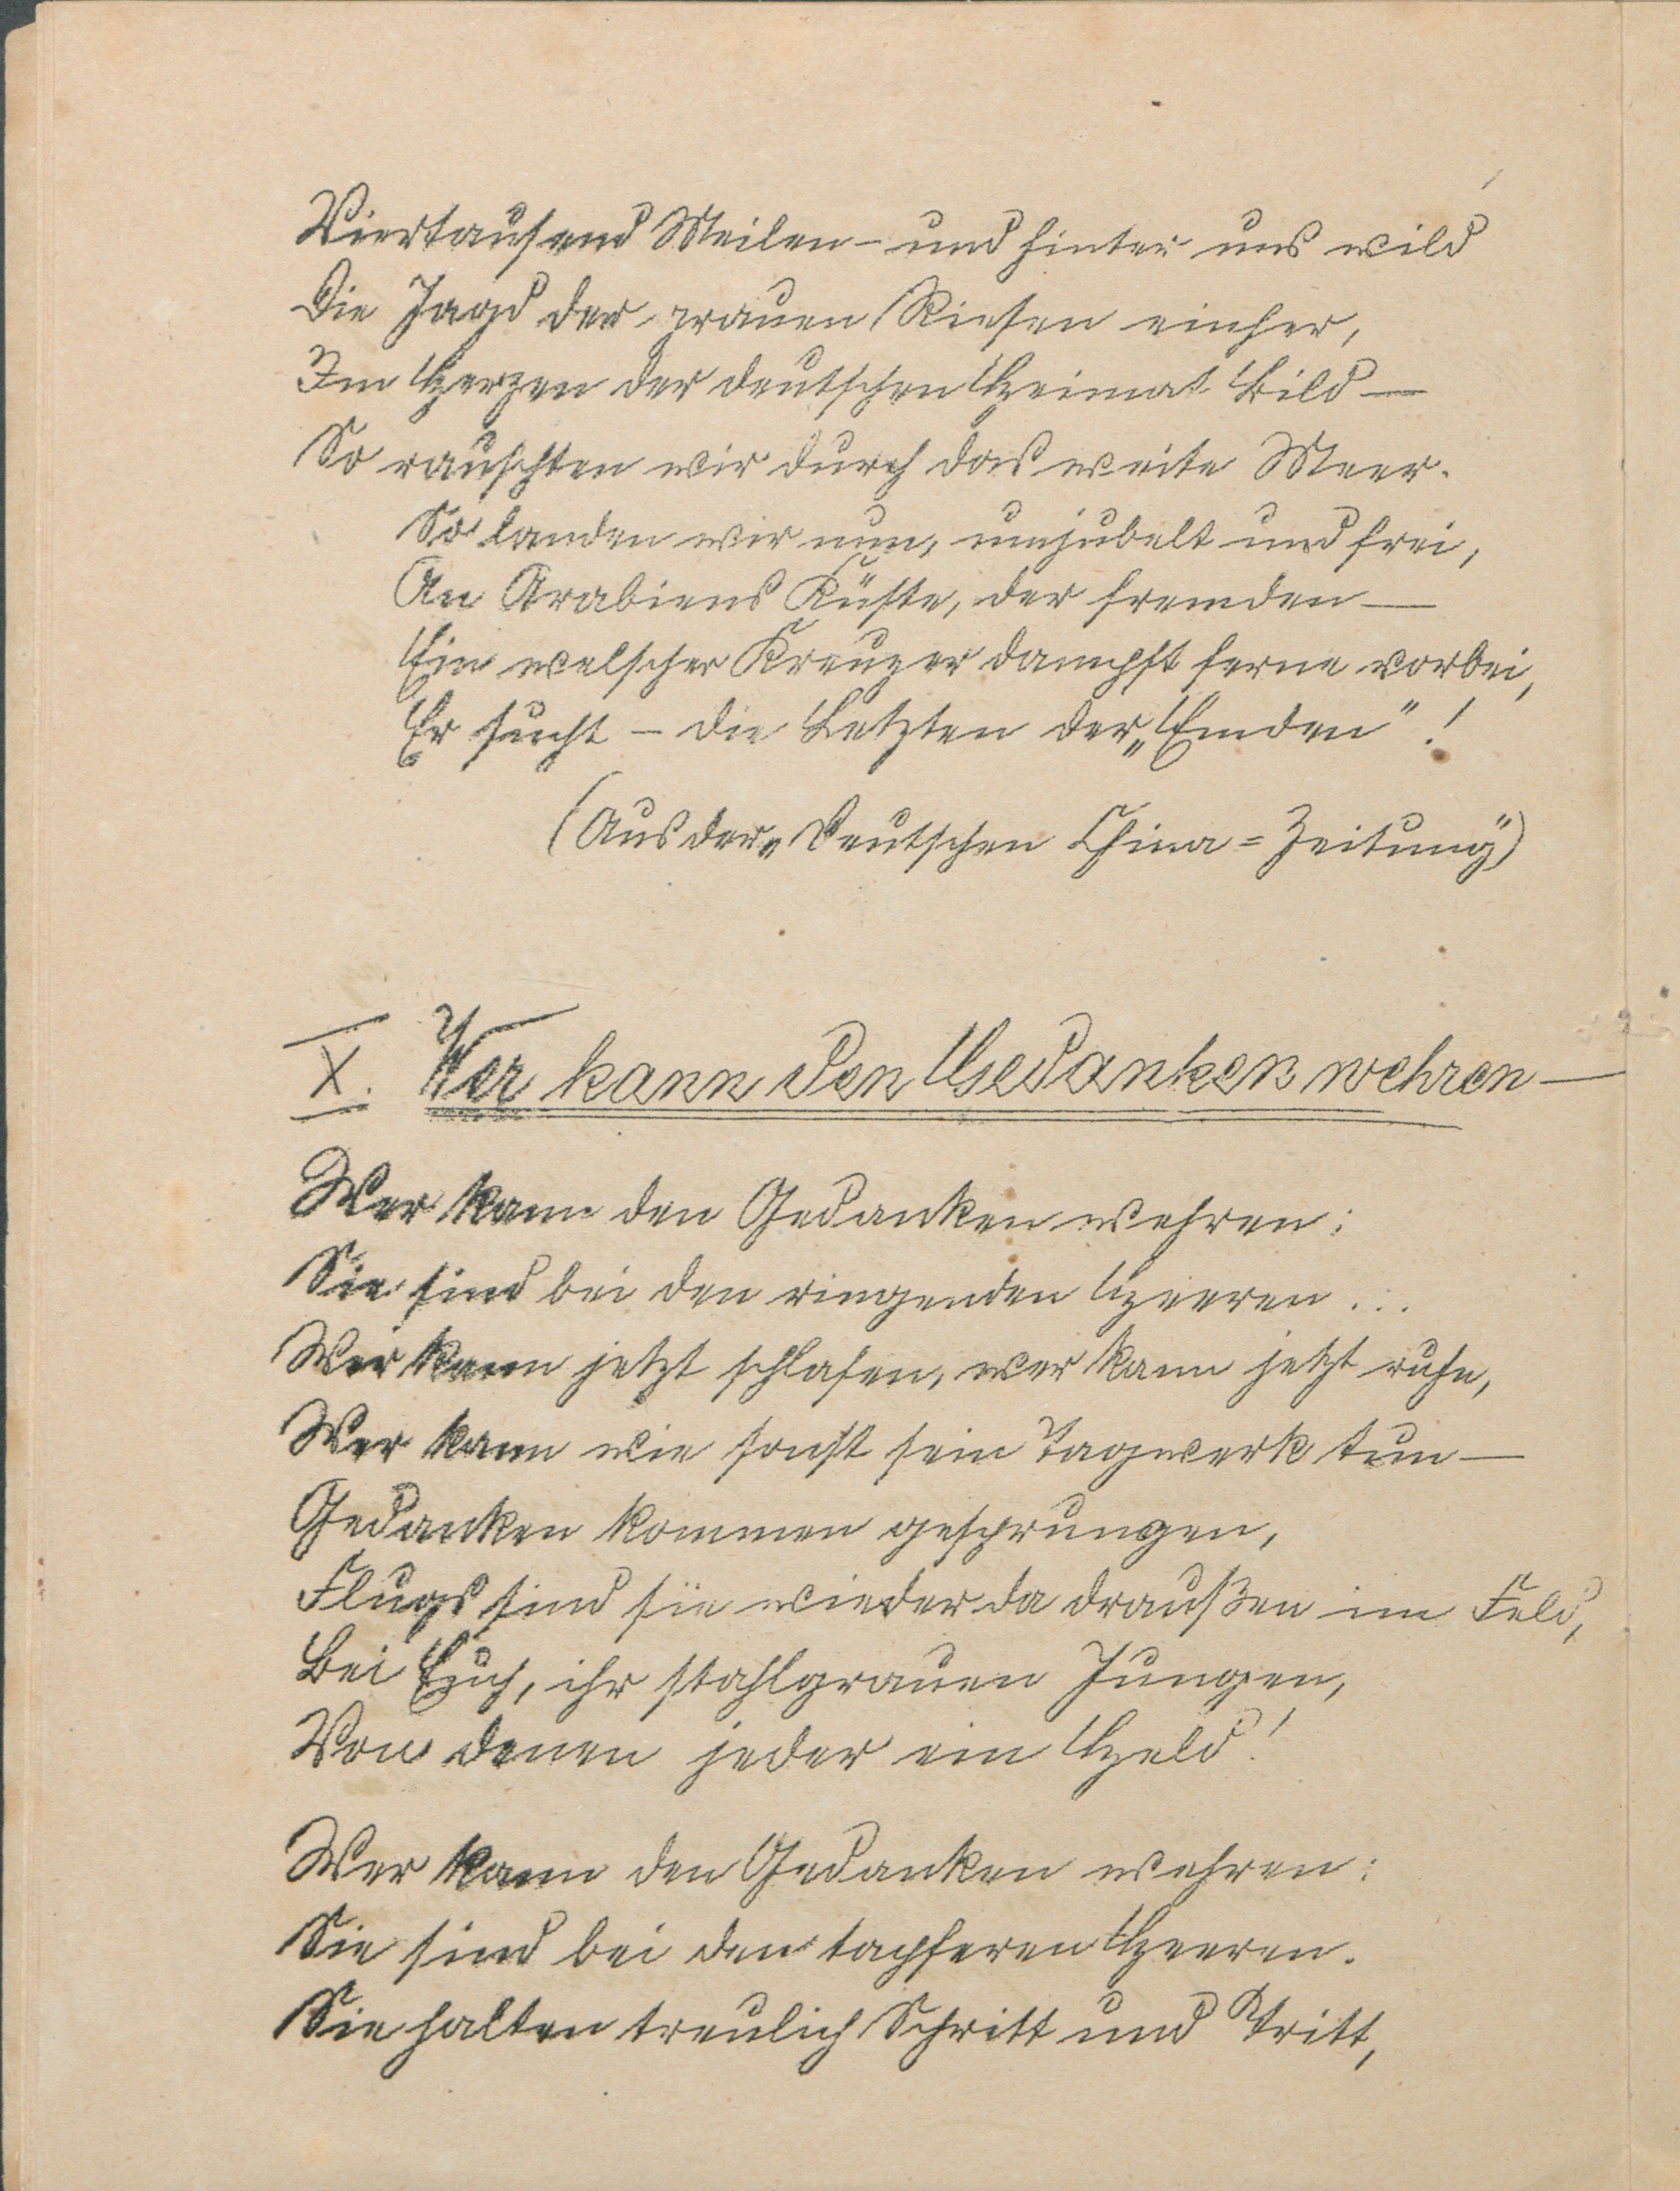 Viertausend Meilen – und hinter uns wild
Die Jagd der grauen Riesen einher,
Im Herzen der deutschen Heimat Bild —
So rauschten wir durch das weite Meer.
So landen wir nun, umjubelt und frei,
An Arabiens Küste, der fremden —
Ein welscher Kreuzer dampft ferne vorbei,
Er sucht – die Letzten der „Emden"!
(Aus der „Deutschen China=Zeitung")
X. Wer kann den Gedanken wehren —
Wer kann den Gedanken wehren:
Sie sind bei den ringenden Heeren ...
Wer kann jetzt schlafen, wer kann jetzt ruhn,
Wer kann wie sonst sein Tagwerk tun —
Gedanken kommen gesprungen,
Flugs sind sie wieder da draußen im Feld,
Bei Euch, ihr stahlgrauen Jungen,
Von denen jeder ein Held!
Wer kann den Gedanken wehren:
Sie sind bei den tapferen Heeren.
Sie halten treulich Schritt und Tritt,